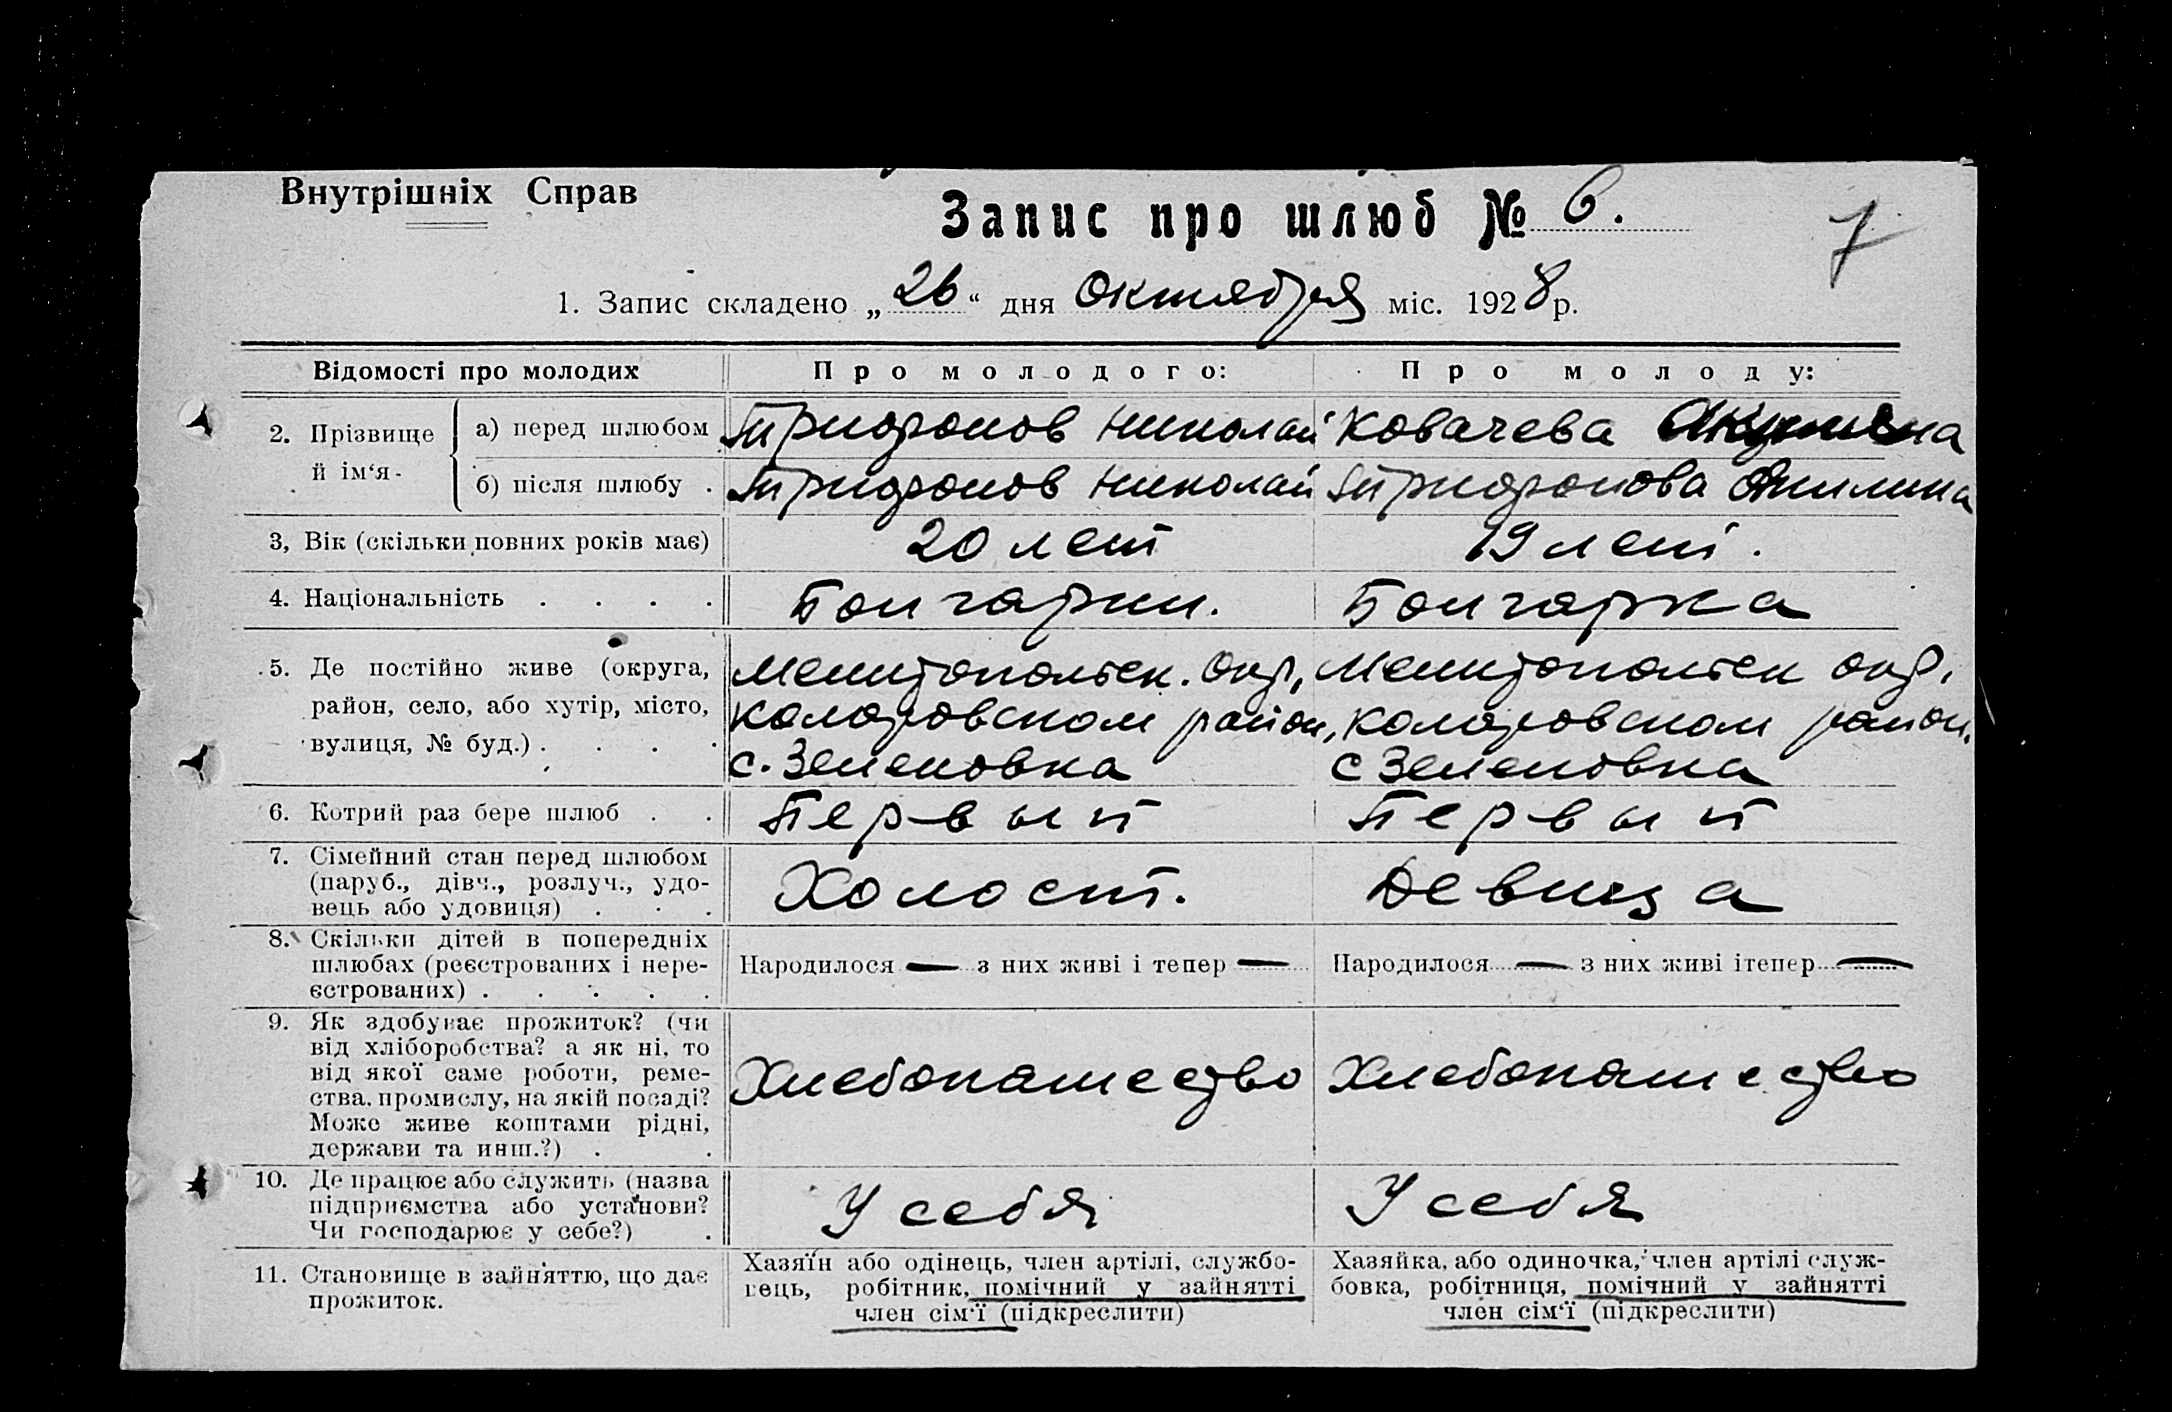 Внутрішніх Справ
Запис про шлюб № 6.
7
1. Запис складено „26“ дня Октября міс. 1928 р.
Відомості про молодих
Про молодого:
Про молоду:
2. Прізвище й ім‘я
а) перед шлюбом
Трифонов Николай
Ковачева
б) після шлюбу .
Трифонов Николай
Трифонова Акилина
3, Вік (скільки повних років має)
20 лет
19 лет.
4. Національність . . . .
Болгарин.
Болгарка
5. Де постійно живе (округа,
район, село, або хутір, місто,
вулиця, № буд.) . . . .
Мелитопольск. окр,
Коларовском район,
с. Зеленовка
Мелитопольск окр,
Коларовском район.
с Зеленовка
6. Котрий раз бере шлюб . .
Первый
Первый
7. Сімейний стан перед шлюбом
(паруб., дівч., розлуч., удо-
вець або удовиця) . . .
Холост.
Девица
8. Скільки дітей в попередніх
шлюбах (реєстрованих і нере-
єстрованих) . . . . .
Народилося — з них живі і тепер —
Народилося — з них живі ітепер —
9. Як здобуває прожиток? (чи
від хліборобства? а як ні, то
від якої саме роботи, реме-
ства, промислу, на якій посаді?
Може живе коштами рідні,
держави та инш.?) . .
Хлебопашество
Хлебопашество
10. Де працює або служить (назва
підприємства або установи?
Чи господарює у себе?) .
У себя
У себя
11. Становище в зайняттю, що дає
прожиток.
Хазяїн або одінець, член артілі, службо-
вець, робітник, помічний у зайнятті
член сім‘ї (підкреслити)
Хазяйка, або одиночка, член артілі служ-
бовка, робітниця, помічний у зайнятті
член сім‘ї (підкреслити)